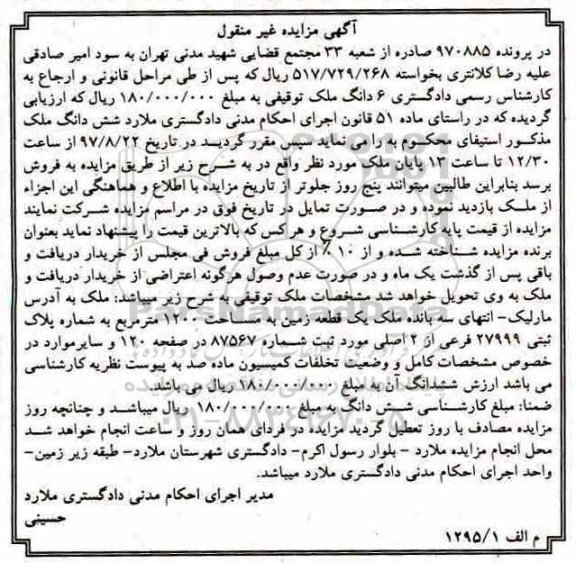 آگهی مزایده غیر منقول
در پرونده ۹۷۰۸۸۵ صادره از شعبه ۳۳ مجتمع قضایی شهید مدنی تهران به سود امیر صادقی
علیه رضا کلانتری بخواسته ۵۱۷/۷۲۹/۲۶۸ ریال که پس از طی مراحل قانونی و ارجاع به
کارشناس رسمی دادگستری ۶ دانگ ملک توقیفی به مبلغ ۱۸۰/۰۰۰/۰۰۰ ریال که ارزیابی
گردیده که در راستای ماده ۵۱ قانون اجرای احکام مدنی دادگستری ملارد شش دانگ ملک
مذکور استیفای محکوم به را می نماید سپس مقرر گردید در تاریخ ۹۷/۸/۲۲ از ساعت
۱۲/۳۰ تا ساعت ۱۳ پایان ملک مورد نظر واقع در به شرح زیر از طریق مزایده به فروش
برسد بنابراین طالبین میتوانند پنج روز جلوتر از تاریخ مزایده با اطلاع و هماهنگی این اجراء
از ملک بازدید نموده و در صورت تمایل در تاریخ فوق در مراسم مزایده شرکت نمایند
مزایده از قیمت پایه کارشناسی شروع و هرکس که بالاترین قیمت را پیشنهاد نماید بعنوان
برنده مزایده شناخته شده و از ۱۰٪ از کل مبلغ فروش فی مجلس از خریدار دریافت و
باقی پس از گذشت یک ماه و در صورت عدم وصول هرگونه اعتراضی از خریدار دریافت و
ملک به وی تحویل خواهد شد مشخصات ملک توقیفی به شرح زیر میباشد: ملک به آدرس
مارلیک- انتهای سه بانده ملک یک قطعه زمین به مساحت ۱۲۰۰ مترمربع به شماره پلاک
ثبتی ۲۷۹۹۹ فرعی از ۲ اصلی مورد ثبت شماره ۸۷۵۶۷ در صفحه ۱۲۰ و سایرموارد در
خصوص مشخصات کامل و وضعیت تخلفات کمیسیون ماده صد به پیوست نظریه کارشناسی
می باشد ارزش ششدانگ آن به مبلغ ۱۸۰/۰۰۰/۰۰۰ ریال می باشد.
ضمنا: مبلغ کارشناسی شش دانگ به مبلغ ۱۸۰/۰۰۰/۰۰۰ ریال میباشد و چنانچه روز
مزایده مصادف با روز تعطیل گردید مزایده در فردای همان روز و ساعت انجام خواهد شد
محل انجام مزایده ملارد - بلوار رسول اکرم- دادگستری شهرستان ملارد- طبقه زیر زمین-
واحد اجرای احکام مدنی دادگستری ملارد میباشد.
مدیر اجرای احکام مدنی دادگستری ملارد
حسینی
م الف ۱۲۹۵/۱